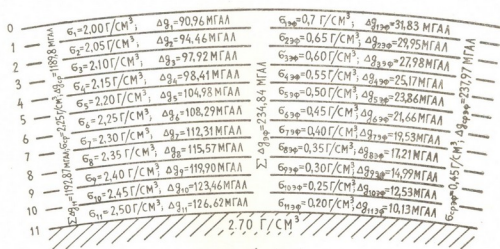 0
1
2
3
4
5
6
7
8
9
10
11
б₁=2,00 Г/СМ³; Δg₁=90,96 МГАЛ
б₂=2,05 Г/СМ³; Δg₂=94,46 МГАЛ
б₃=2,10 Г/СМ³; Δg₃=97,92 МГАЛ
б₄=2,15 Г/СМ³; Δg₄=98,41 МГАЛ
б₅=2,20 Г/СМ³; Δg₅=104,98 МГАЛ
б₆=2,25 Г/СМ³; Δg₆=108,29 МГАЛ
б₇=2,30 Г/СМ³; Δg₇=112,31 МГАЛ
б₈=2,35 Г/СМ³; Δg₈=115,57 МГАЛ
б₉=2,40 Г/СМ³; Δg₉=119,90 МГАЛ
б₁₀=2,45 Г/СМ³; Δg₁₀=123,46 МГАЛ
б₁₁=2,50 Г/СМ³; Δg₁₁=126,62 МГАЛ
бср=2,25 Г/СМ³; Δgср=1189,8 МГАЛ
∑Δg₁₁=1192,87 МГАЛ
∑Δgэф=234,84 МГАЛ
б₁эф=0,7 Г/СМ³; Δg₁эф=31,83 МГАЛ
б₂эф=0,65 Г/СМ³; Δg₂эф=29,95 МГАЛ
б₃эф=0,60 Г/СМ³; Δg₃эф=27,98 МГАЛ
б₄эф=0,55 Г/СМ³; Δg₄эф=25,17 МГАЛ
б₅эф=0,50 Г/СМ³; Δg₅эф=23,86 МГАЛ
б₆эф=0,45 Г/СМ³; Δg₆эф=21,66 МГАЛ
б₇эф=0,40 Г/СМ³; Δg₇эф=19,53 МГАЛ
б₈эф=0,35 Г/СМ³; Δg₈эф=17,21 МГАЛ
б₉эф=0,30 Г/СМ³; Δg₉эф=14,99 МГАЛ
б₁₀эф=0,25 Г/СМ³; Δg₁₀эф=12,53 МГАЛ
б₁₁эф=0,20 Г/СМ³; Δg₁₁эф=10,13 МГАЛ
бсрэф=0,45 Г/СМ³; Δgсрэф=237,97 МГАЛ
2.70 Г/СМ³